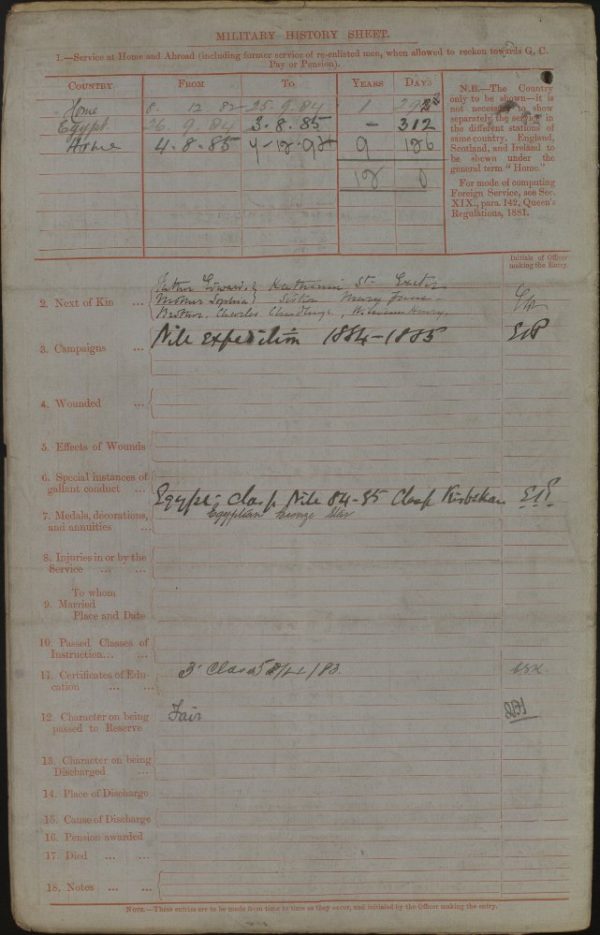 MILITARY HISTORY SHEET.
1.—Service at Home and Abroad (including former service of re-enlisted men, when allowed to reckon towards G. C.
Pay or Pension).
COUNTRY FROM TO YEARS DAYS
Home 8. 12 82 25. 9. 84 1
Egypt 26. 9. 84 3. 8. 85 - 312
Home 4-8-85 7-12-94 9 126
12 0
N.B.—The Country
only to be shown—it is
not necessary to show
separately the service in
the different stations of
same country. England,
Scotland, and Ireland to
be shown under the
general term "Home."
For mode of computing
Foreign Service, see Sec.
XIX., para. 142, Queen's
Regulations, 1881.
Initials of Officer
making the Entry.
2. Next of Kin ...
Father Edward, St. Exeter
Mother Sophia, Sister Mary
Brother, Charles, Henry.
3. Campaigns ... Nile Expedition 1884-1885
4. Wounded ...
5. Effects of Wounds
6. Special instances of
gallant conduct ...
Egypt. Clasp Nile 84-85 Clasp Kirbekan
7. Medals, decorations, Egyptian Bronze Star
and annuities ...
8. Injuries in or by the
Service ... ...
To whom
9. Married
Place and Date
10. Passed Classes of
Instruction... ...
11. Certificates of Edu-
cation ... ...
3rd Class
12. Character on being Fair
passed to Reserve
13. Character on being
Discharged ...
14. Place of Discharge
15. Cause of Discharge
16. Pension awarded
17. Died ... ...
18. Notes ... ...
NOTE.—These entries are to be made from time to time as they occur, and initialed by the Officer making the entry.